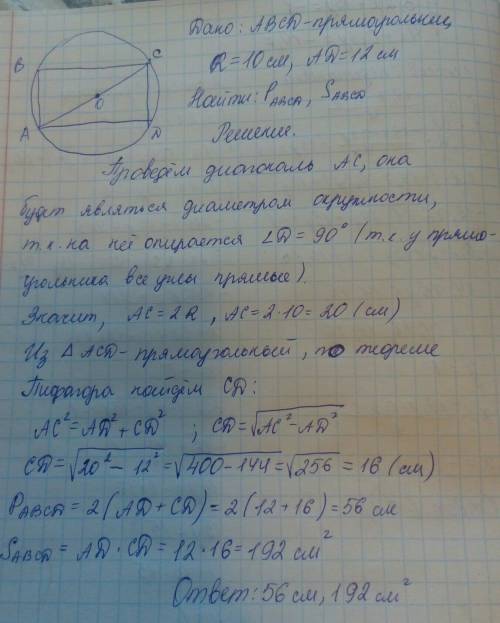 Дано: ABCD-прямоугольник
R=10 см, AD=12 см
Найти: P_ABCD, S_ABCD
Решение.
B
C
O
A
D
Проведём диагональ AC, она
будет являться диаметром окружности,
т.к. на неё опирается ∠D=90° (т.к. у прямо-
угольника все углы прямые).
Значит, AC=2R, AC=2·10=20 (см)
Из △ ACD-прямоугольный, по теореме
Пифагора найдём CD:
AC²=AD²+CD² ; CD=√(AC²-AD²)
CD=√(20²-12²)=√(400-144)=√256=16 (см)
P_ABCD=2(AD+CD)=2(12+16)=56 см
S_ABCD=AD·CD=12·16=192 см²
Ответ: 56 см, 192 см²